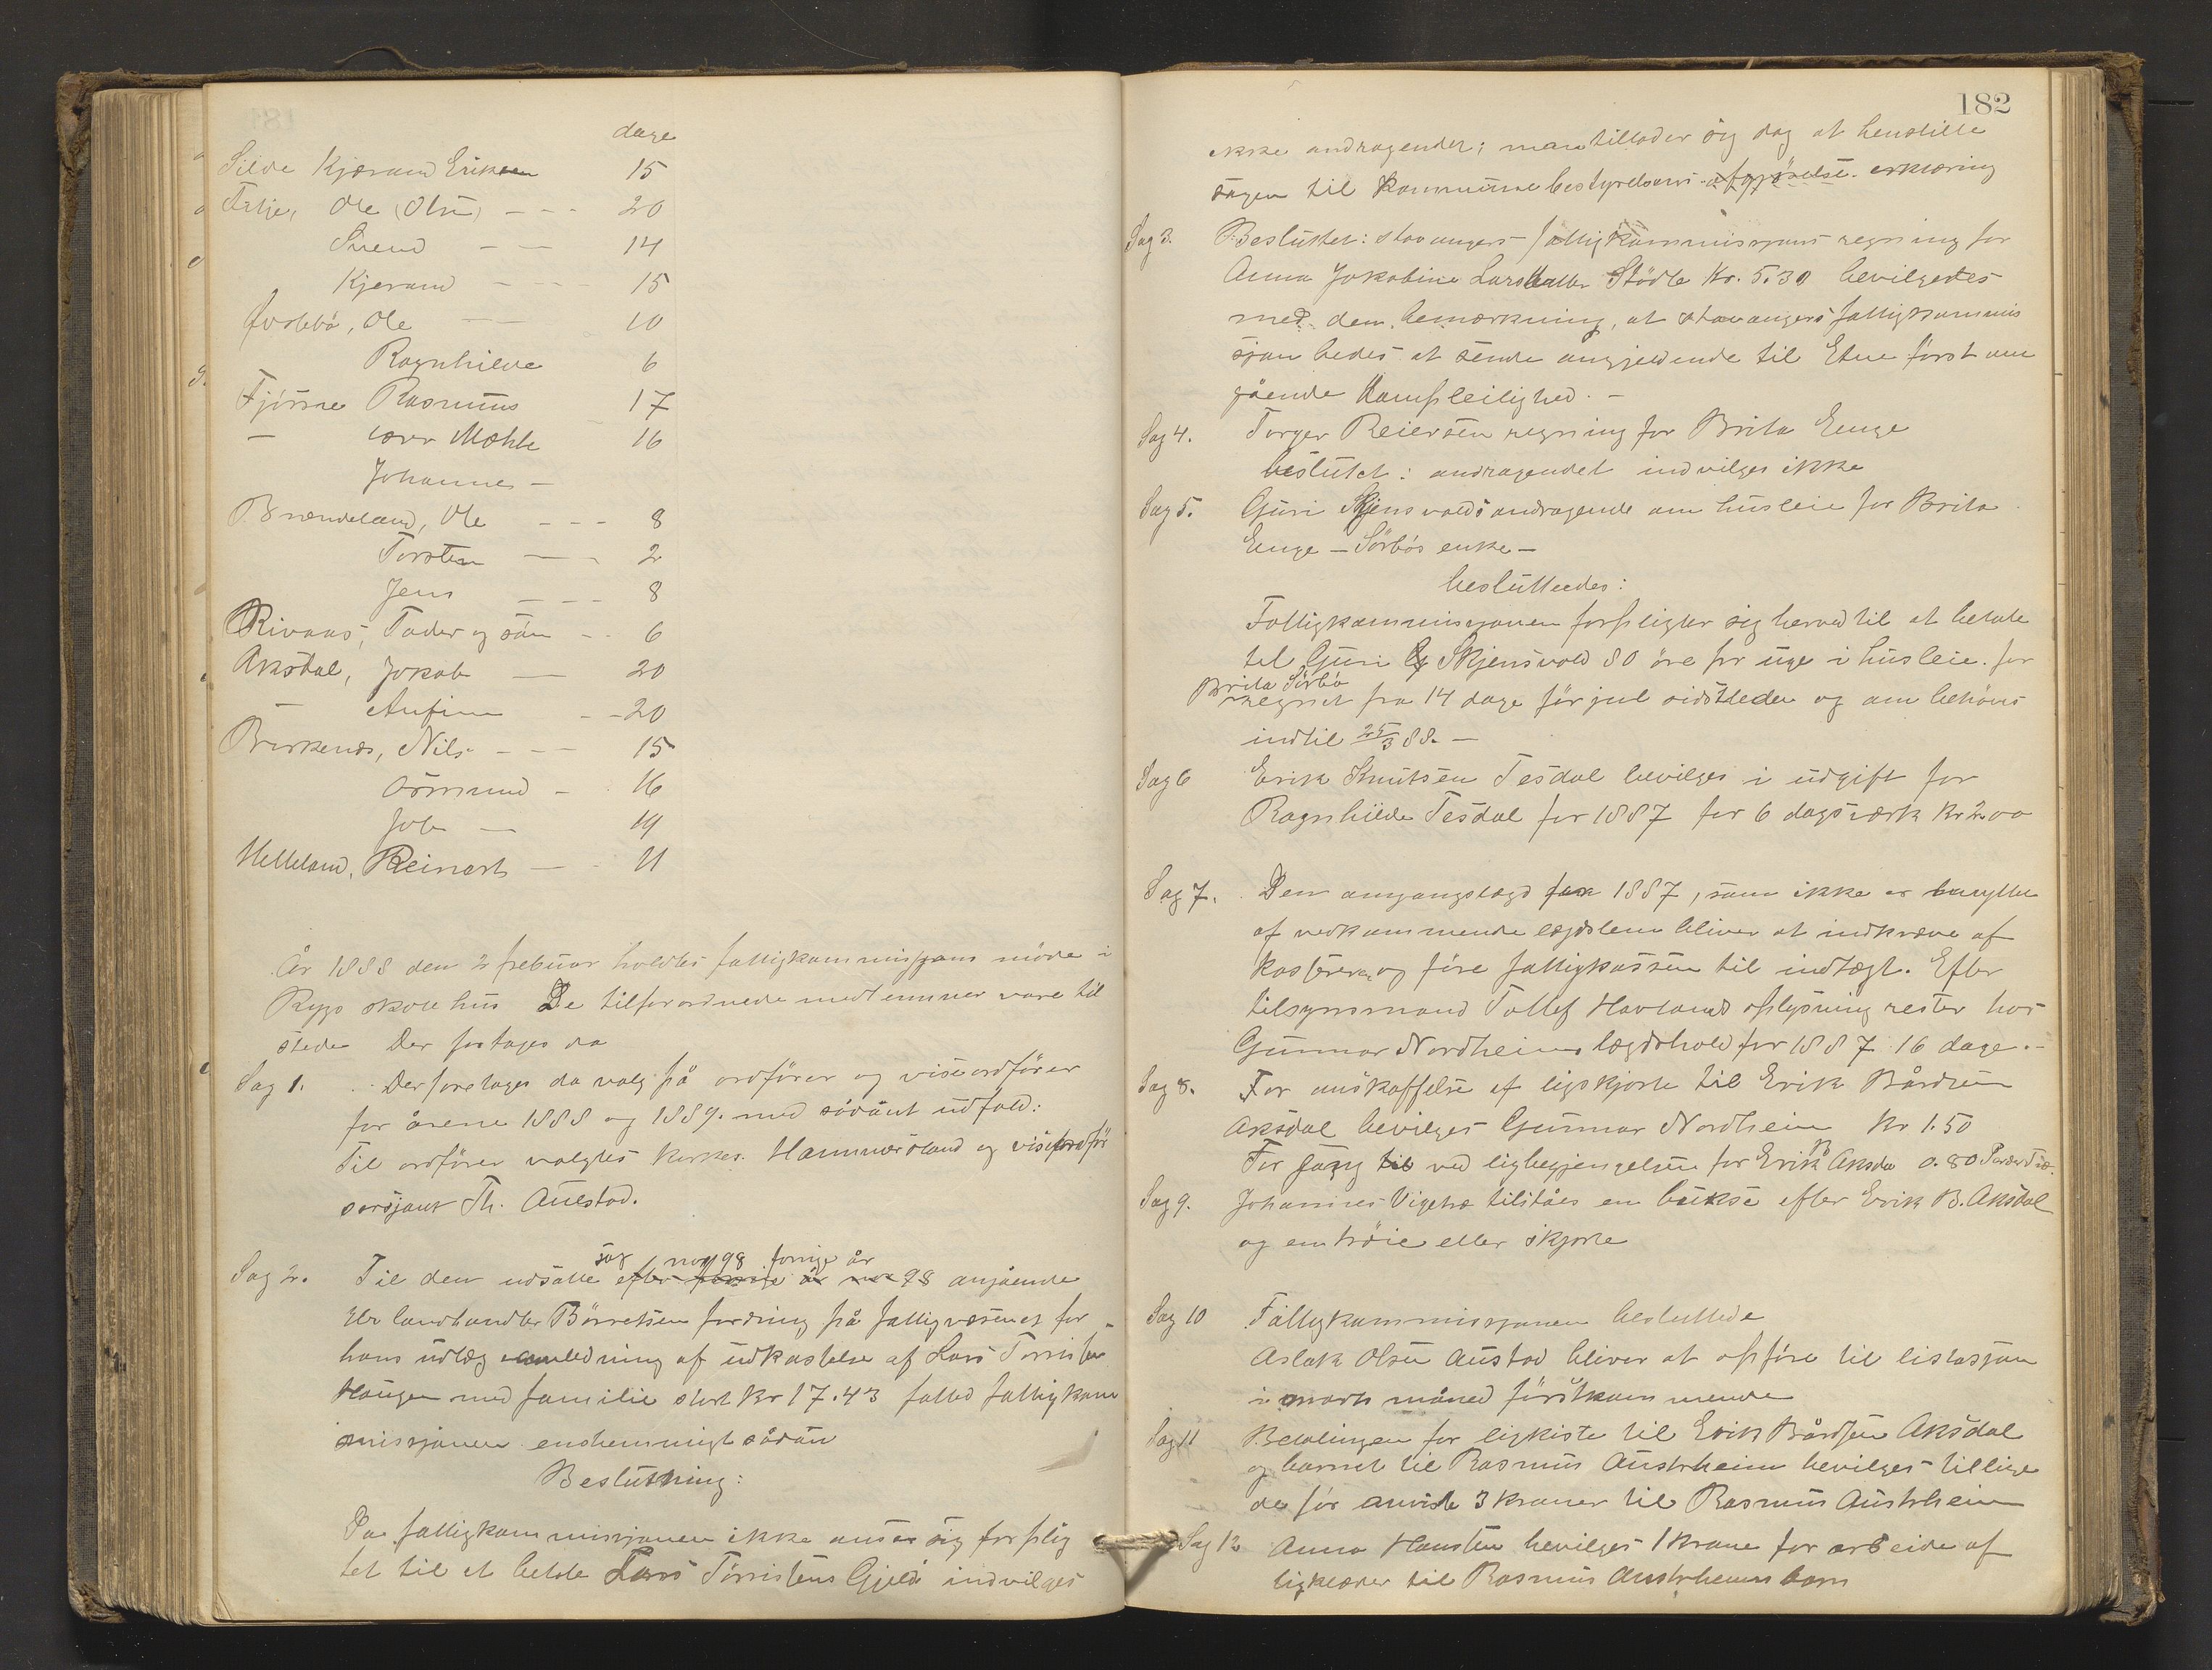 dage
Silde Kjærand Eriksen 15
Felje, Ole (Olsen) - - - 20
Svend - - 14
Kjerand - - - 15
Ole - - 10
Ragnhilde 6
Fjösne Rasmus 17
- Mæhle 16
Johannes -
Brændeland, Ole - - - 8
Torsten - - 2
Jens - - - 8
Rivenes, Tader og sön - - 6
Aksdal, Jokob - 20
- Anfin - - 20
Birkenes, Nils - - - 15
Ormund - 16
Job - 19
Helleland, Reinert - - 11
År 1888 den 2 frebuar holdtes fattigkommissjons möde i
Rygs skolehus De tilforordnede medlemmer vare til
stede Der foretages da
Sag 1. Der foretages da valg på ordförer og viseordförer
for årene 1888 og 1889. med sådant udfald:
Til ordförer valgtes kirkes. Hammersland og viseordför
sersjant Th. Austad.
sag nor 98 forrige år
Sag 2. Til den udsatte efter forrige år nor 98 angående
Hr landhandler Börretsen fordring på fattigvæsenet for
hans udlæg i anledning af udkastelse af Lars Torrisen
Haugen med familie stort kr 17.43 fatted fattigkom
missjonen enstemmigt sådan
Beslutning:
Da fattigkommissjonen ikke anser sig forplig
tet til at betale Lars Törrisens Gjeld indvilges
182
ikke andragendet; man tillader sig dog at henstille
sagen til Kommunebestyrelsens afgjörelse. erklæring
Sag 3. Besluttet: stavangers fattigkommissjons regning for
Anna Jokobine Larsdatter Stödle Kr. 5.30 bevilgedes
med den bemærkning, at stavangers fattigkommis
sjon bedes at sende angjeldende til Etne först om
gående Dampleilighed. -
Sag 4. Torger Reiersen regning for Brita Enge
beslutet: andragendet indvilges ikke
Sag 5. Guri Skjensvolds andragende om husleie for Brita
Enge - Sörbös enke -
besluttedes:
Fattigkommissjonen forpligter sig herved til at betale
til Guri Skjensvold 80 öre pr uge i husleie for
Brita Sörbö
regnet fra 14 dage för jul sidstleden og om behöves
indtil 25/3 88. -
Sag 6 Erik Knutsen Tesdal bevilges i udgift for
Ragnhilde Tesdal for 1887 for 6 dagsværk kr 2.00
Sag 7. Den omgangslægd for 1887, som ikke er benyttet
af vedkommende lægdslem bliver at indkræve af
kasserer og före fattigkassen til indtægt. Efter
tilsynsmand Tollef Havlands oplysning rester hos
Gunnar Nordheims lægdshold for 1887 16 dage. -
Sag 8. For anskaffelse af ligskjorte til Erik Bårdsen
Aksdal bevilges Gunnar Nordheim kr 1.50
For sang til ved ligbegjengelsen for Erik B Aksdal 0.80
Sag 9. Johannes Vigetræ tilståes en bukse efter Erik B. Aksdal
og en tröie eller skjorte
Sag 10 Fattigkommissjonen besluttede
Aslak Olsen Austad bliver at opföre til lisitasjon
i marts måned förstkommende
Sag 11 Betalingen for ligkiste til Erik Bårdsen Aksdal
og barnet til Rasmus Austrheim bevilges tillige
de för anviste 3 kroner til Rasmus Austrheim
Sag 12 Anna Hansten bevilges 1 krone for arbeide af
ligklæder til Rasmus Austrheims barn